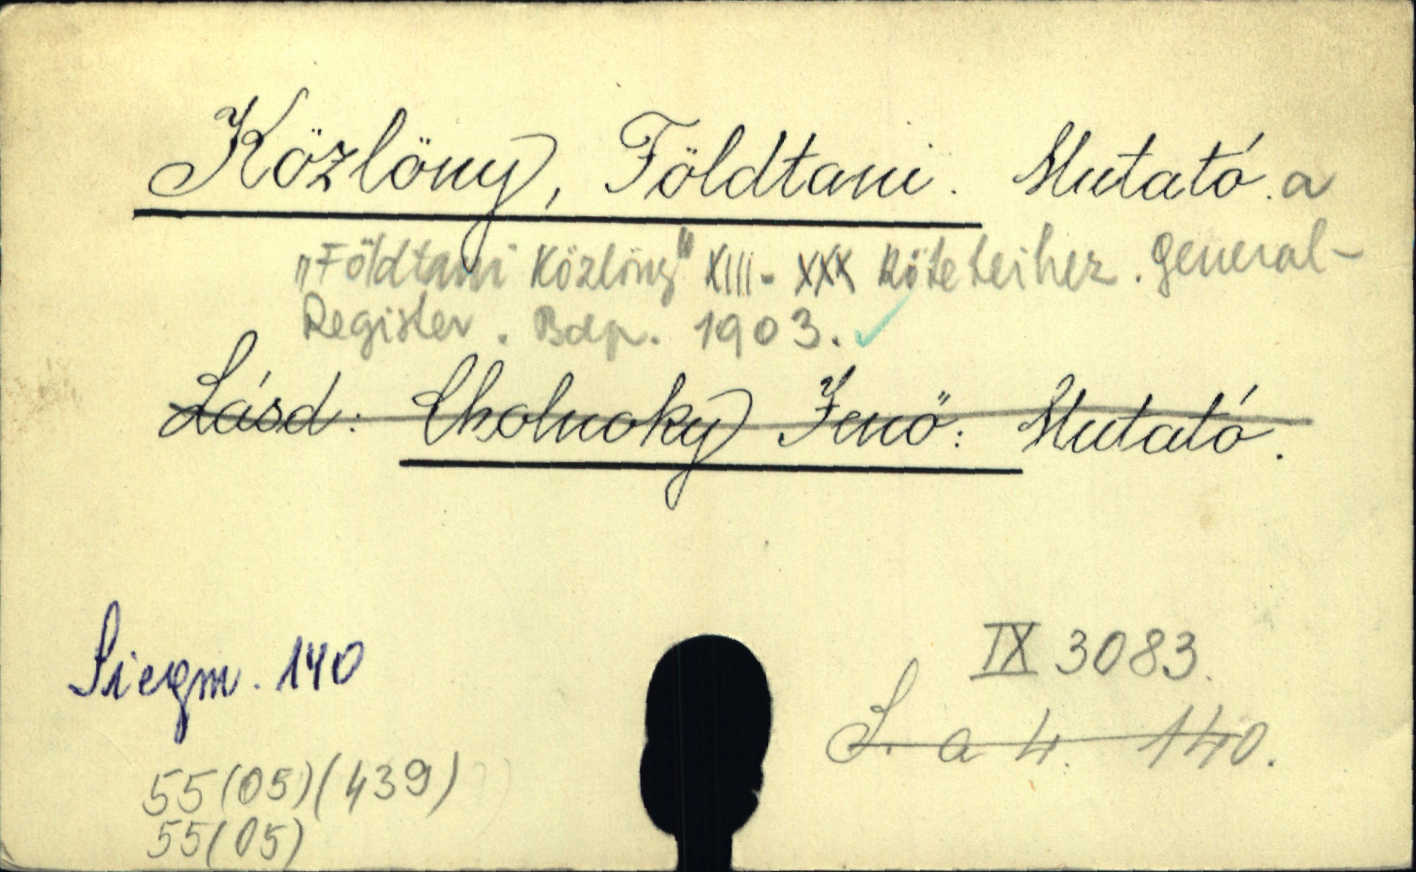 Közlöny, Földtani. Mutató a
„Földtani Közlöny" XIII-XXX köteteihez. General-
Register. Bdp. 1903. ✓
Lásd: Cholnoky Jenő: Mutató.
Siegm. 140
IX 3083.
L. a 4. 140.
55(05)(439)
55(05)